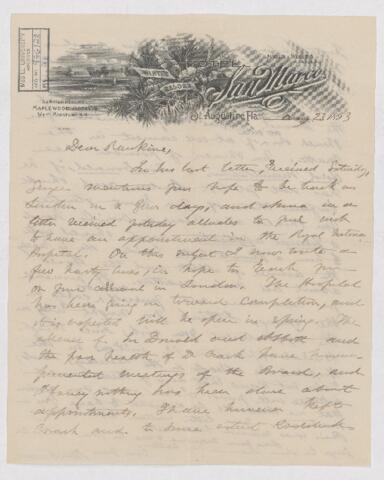 McGILL UNIVERSITY
ACC. NO.
HOTEL
San Marco
WINTER
RESORT
SUMMER RESORT
MAPLEWOOD HOTEL
St Augustine, Fla. 23 1893
Dear Ruskine,
In his last letter, received Saturday,
mentions your hope to be back in
London in a few days, and in a
letter received yesterday alludes to your wish
to have an appointment in the Royal Victoria
Hospital. On this subject I now write a
few hasty lines in hope to reach you
on your arrival in London. The Hospital
has been going on toward completion, and
it is expected will be open in spring. The
absence of Sir Donald and Abbott and
the poor health of D. have
prevented meetings of the Board, and
I fancy nothing has been done about
appointments. I have however kept
and to some extent